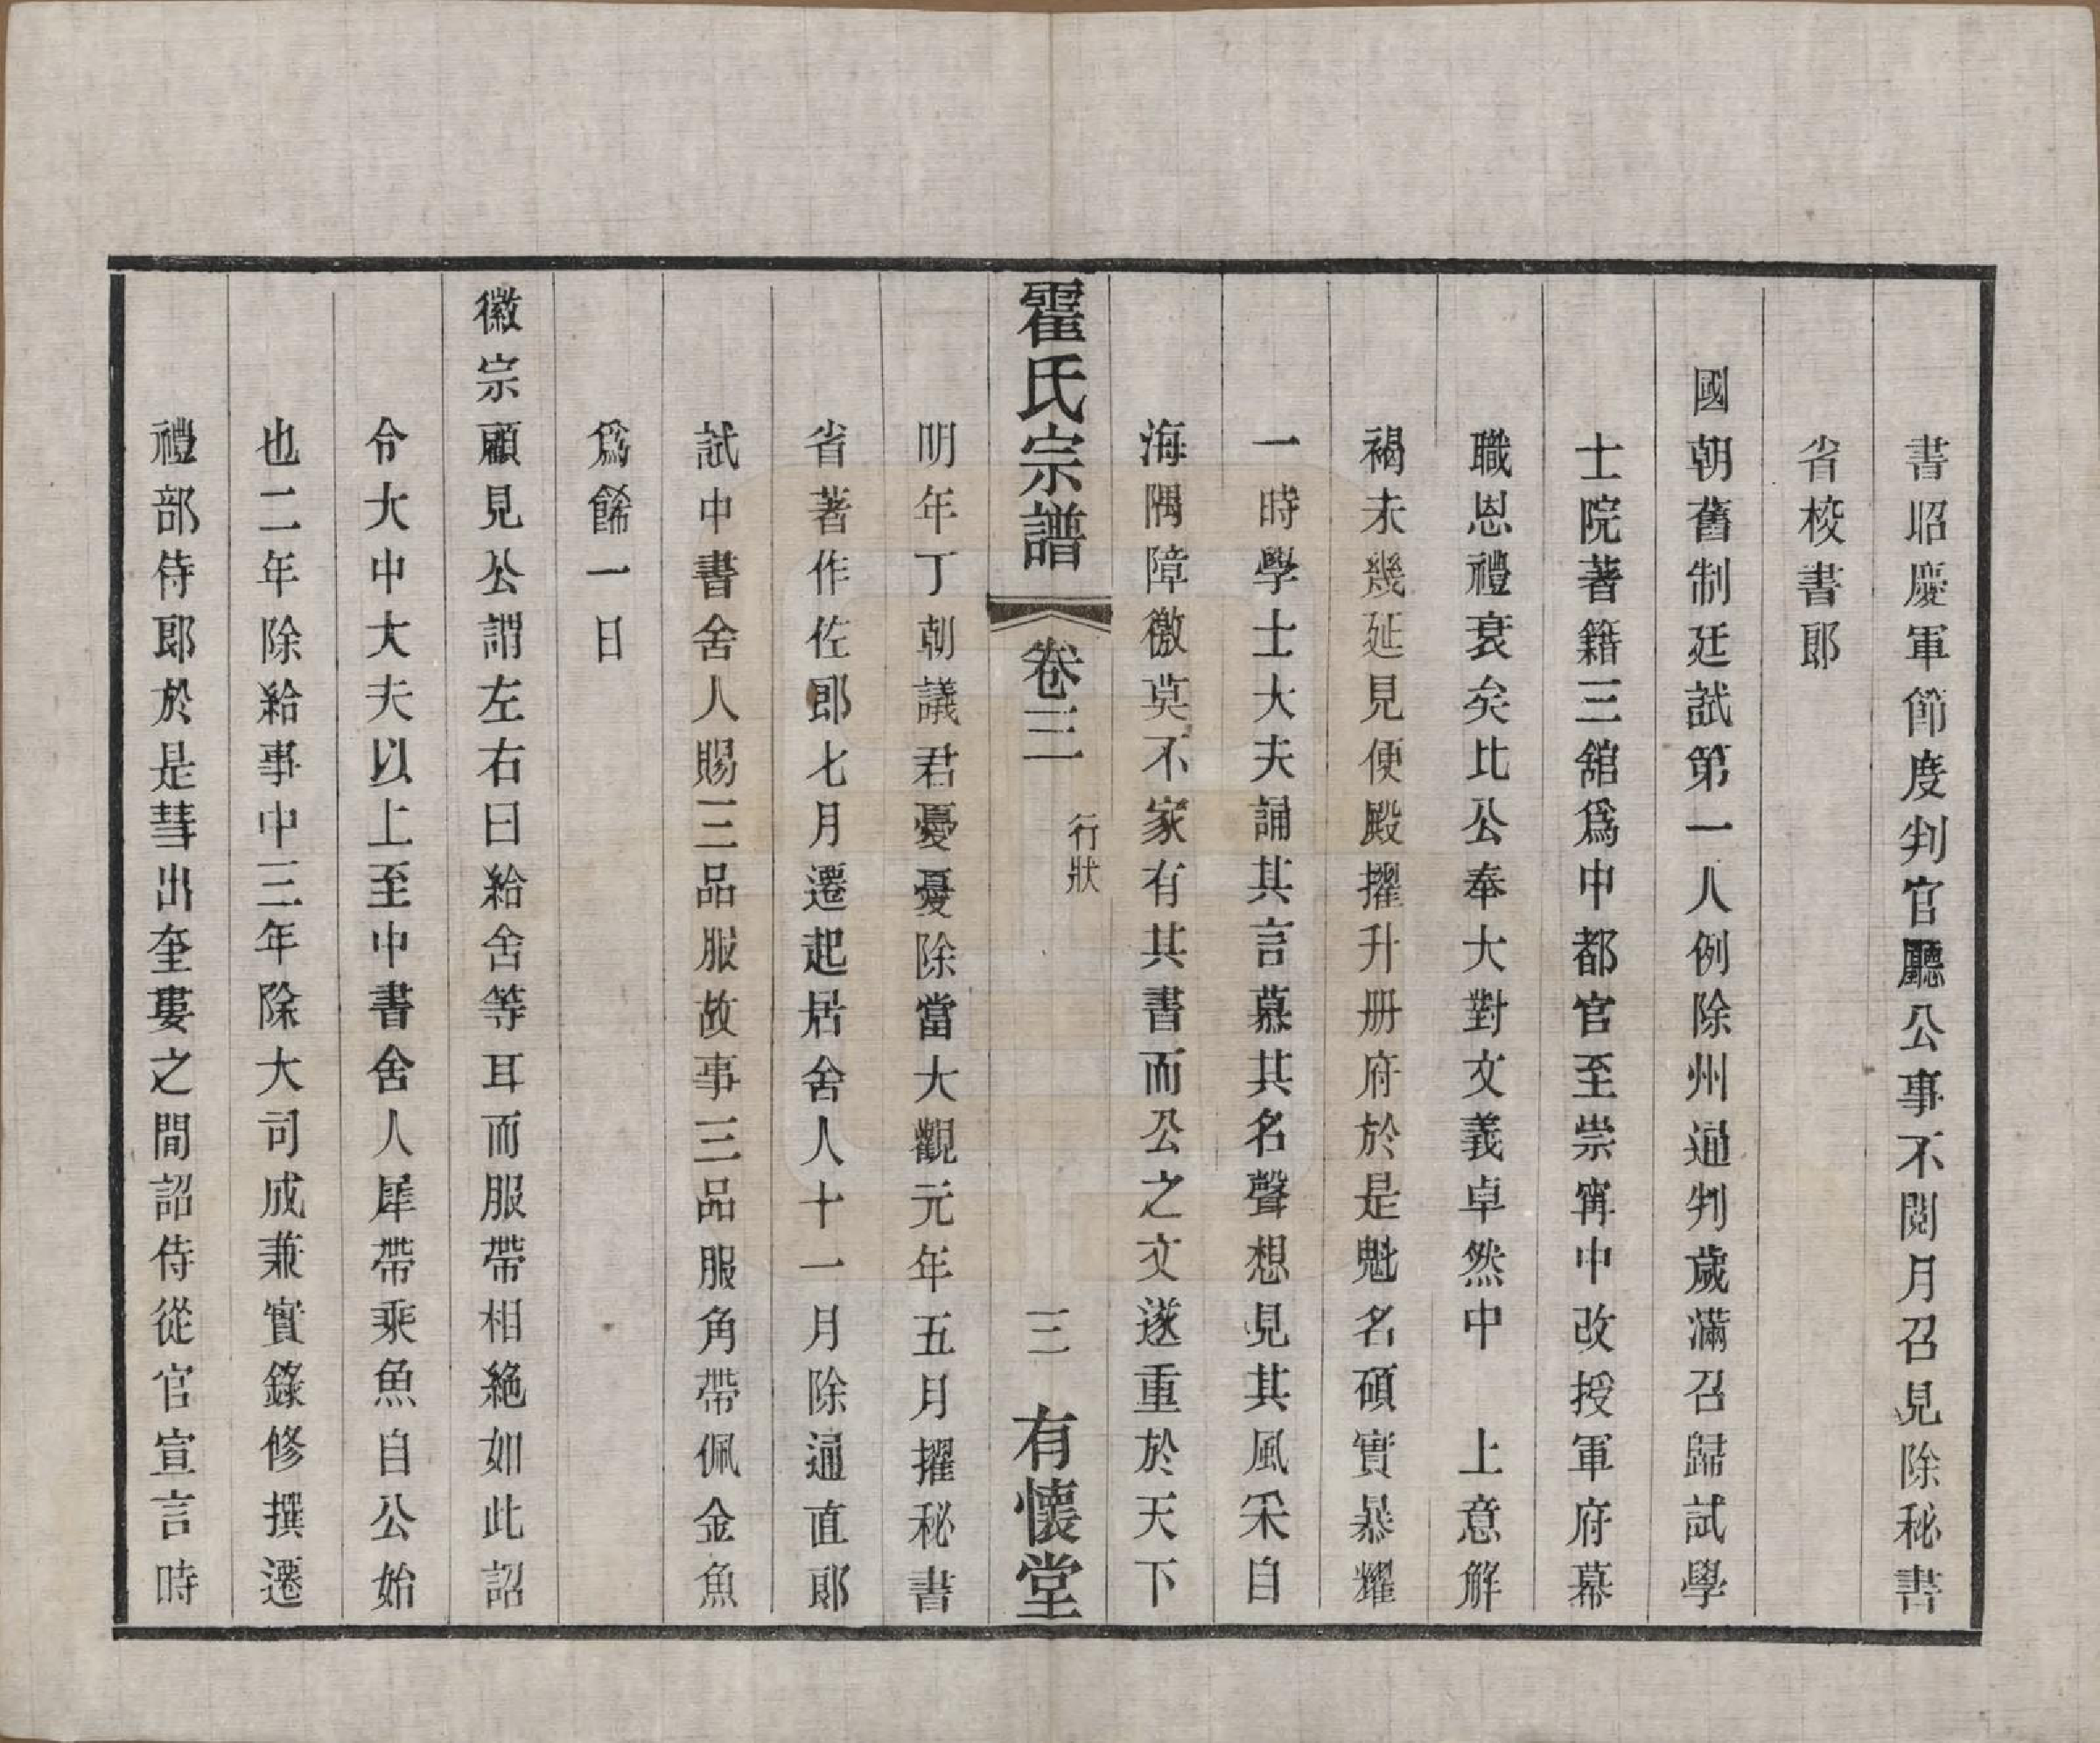 書昭慶軍節度判官廳公事不閱月召見除秘書
省校書郎
國朝舊制廷試第一人例除州通判歲滿召歸試學
士院著籍三舘爲中都官至崇寗中改授軍府幕
職恩禮衰矣比公奉大對文義卓然中　上意解
褐未幾延見便殿擢升册府於是魁名碩實暴耀
一時學士大夫誦其言慕其名聲想見其風采自
海隅障徼莫不家有其書而公之文遂重於天下
霍氏宗譜　卷三　行狀　三　有懷堂
明年丁朝議君憂憂除當大觀元年五月擢秘書
省著作佐郎七月遷起居舍人十一月除通直郎
試中書舍人賜三品服故事三品服角帶佩金魚
爲餙一日
徽宗顧見公謂左右曰給舍等耳而服帶相絶如此詔
令大中大夫以上至中書舍人犀帶乘魚自公始
也二年除給事中三年除大司成兼實錄修撰遷
禮部侍郎於是彗出奎婁之間詔侍從官宣言時